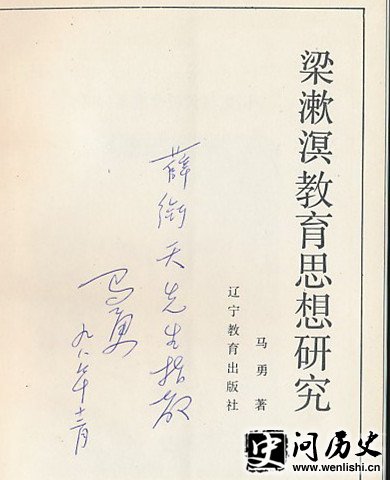 梁漱溟教育思想研究
马勇著
辽宁教育出版社
薛銜天先生指教
马勇
九八年十二月
问历史
www.wenlishi.cn